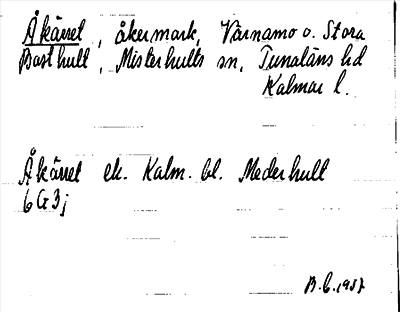 Åkärret, åkermark, Värnamo o. Stora
Basthult, Misterhults sn, Tunaläns hd
Kalmar l.
Åkärret ek. Kalm. bl. Mederhult
6G3j
B.C. 1957